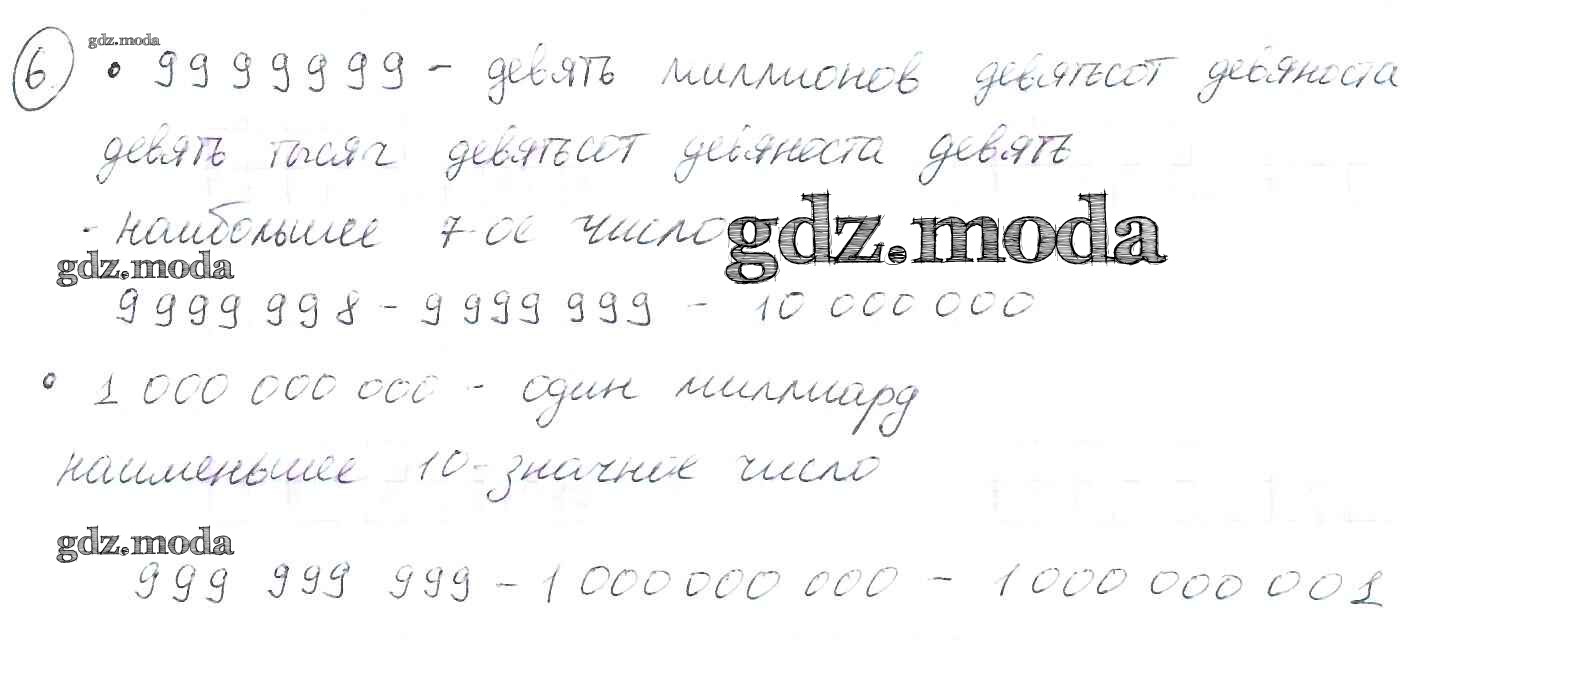 gdz.moda
6 • 9999999 - девять миллионов девятьсот девяноста
девять тысяч девятьсот девяноста девять
- наибольшее 7-ое число
gdz.moda
gdz.moda
9999 998 - 9 999 999 - 10 000 000
• 1 000 000 000 - один миллиард
наименьшее 10-значное число
gdz.moda
999 999 999 - 1 000 000 000 - 1 000 000 001